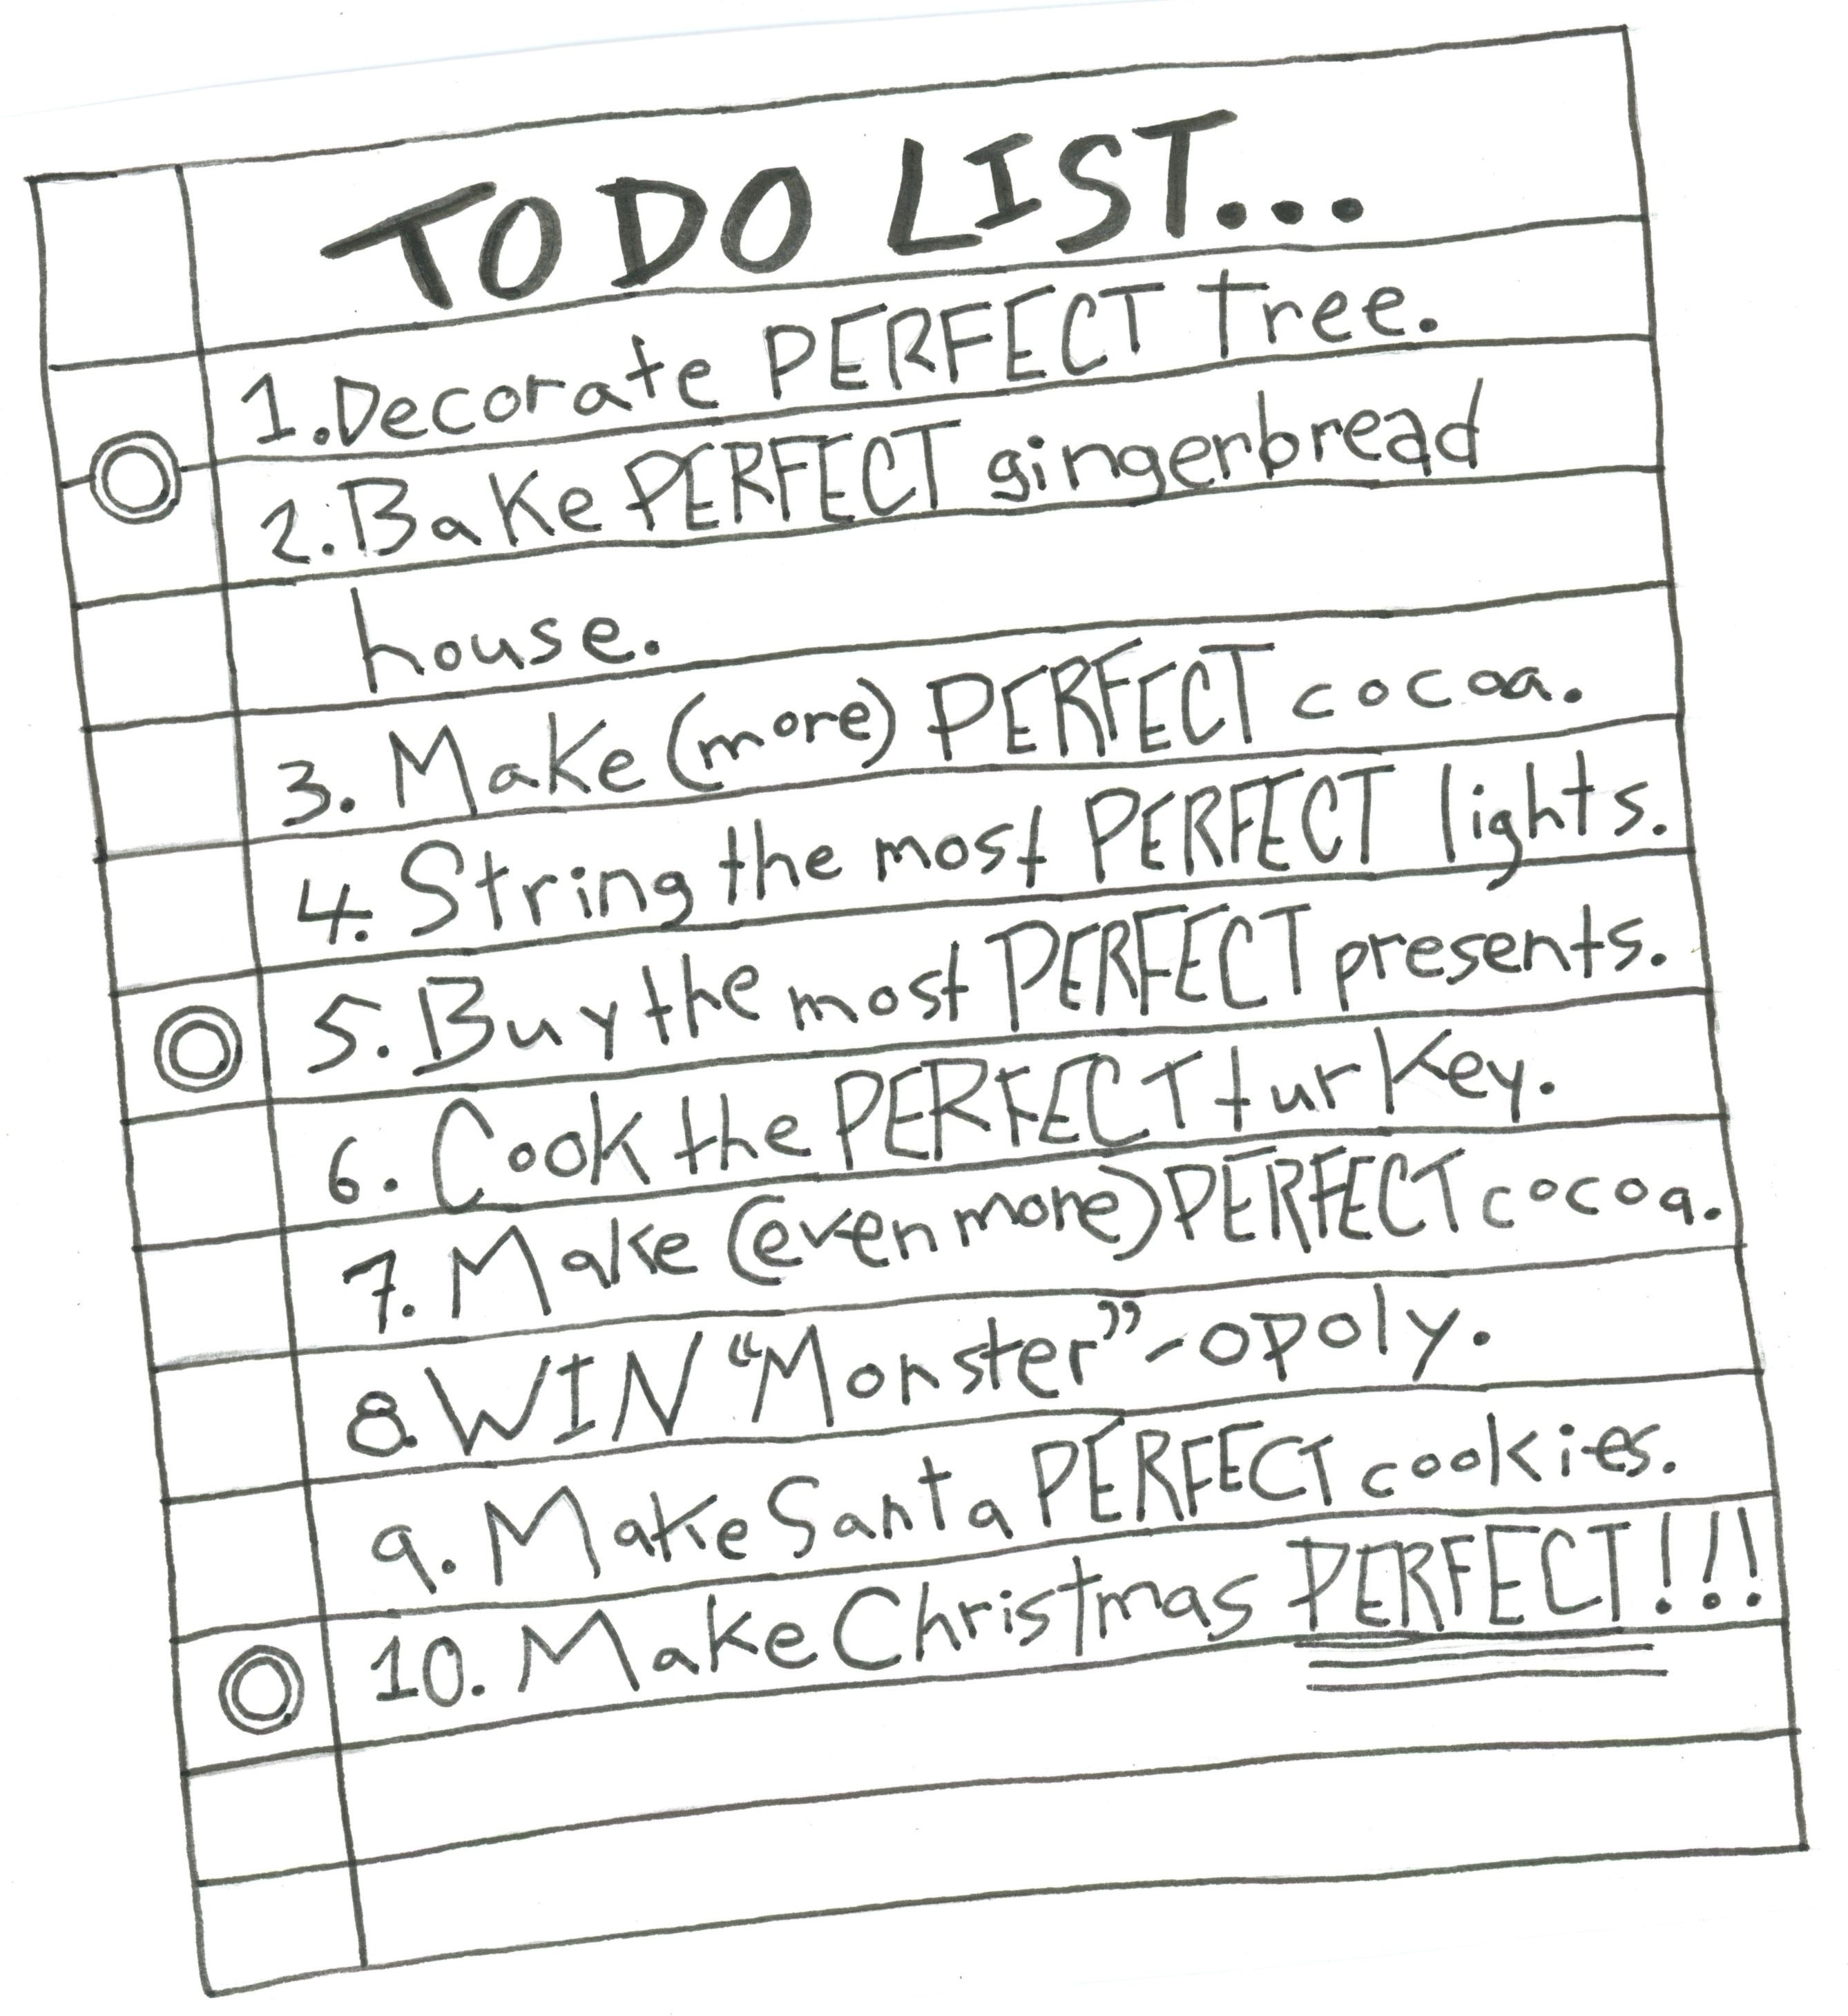 TO DO LIST...
1. Decorate PERFECT tree.
2. Bake PERFECT gingerbread
house.
3. Make (more) PERFECT cocoa.
4. String the most PERFECT lights.
5. Buy the most PERFECT presents.
6. Cook the PERFECT turkey.
7. Make (even more) PERFECT cocoa.
8. WIN “Monster”-opoly.
9. Make Santa PERFECT cookies.
10. Make Christmas PERFECT!!!